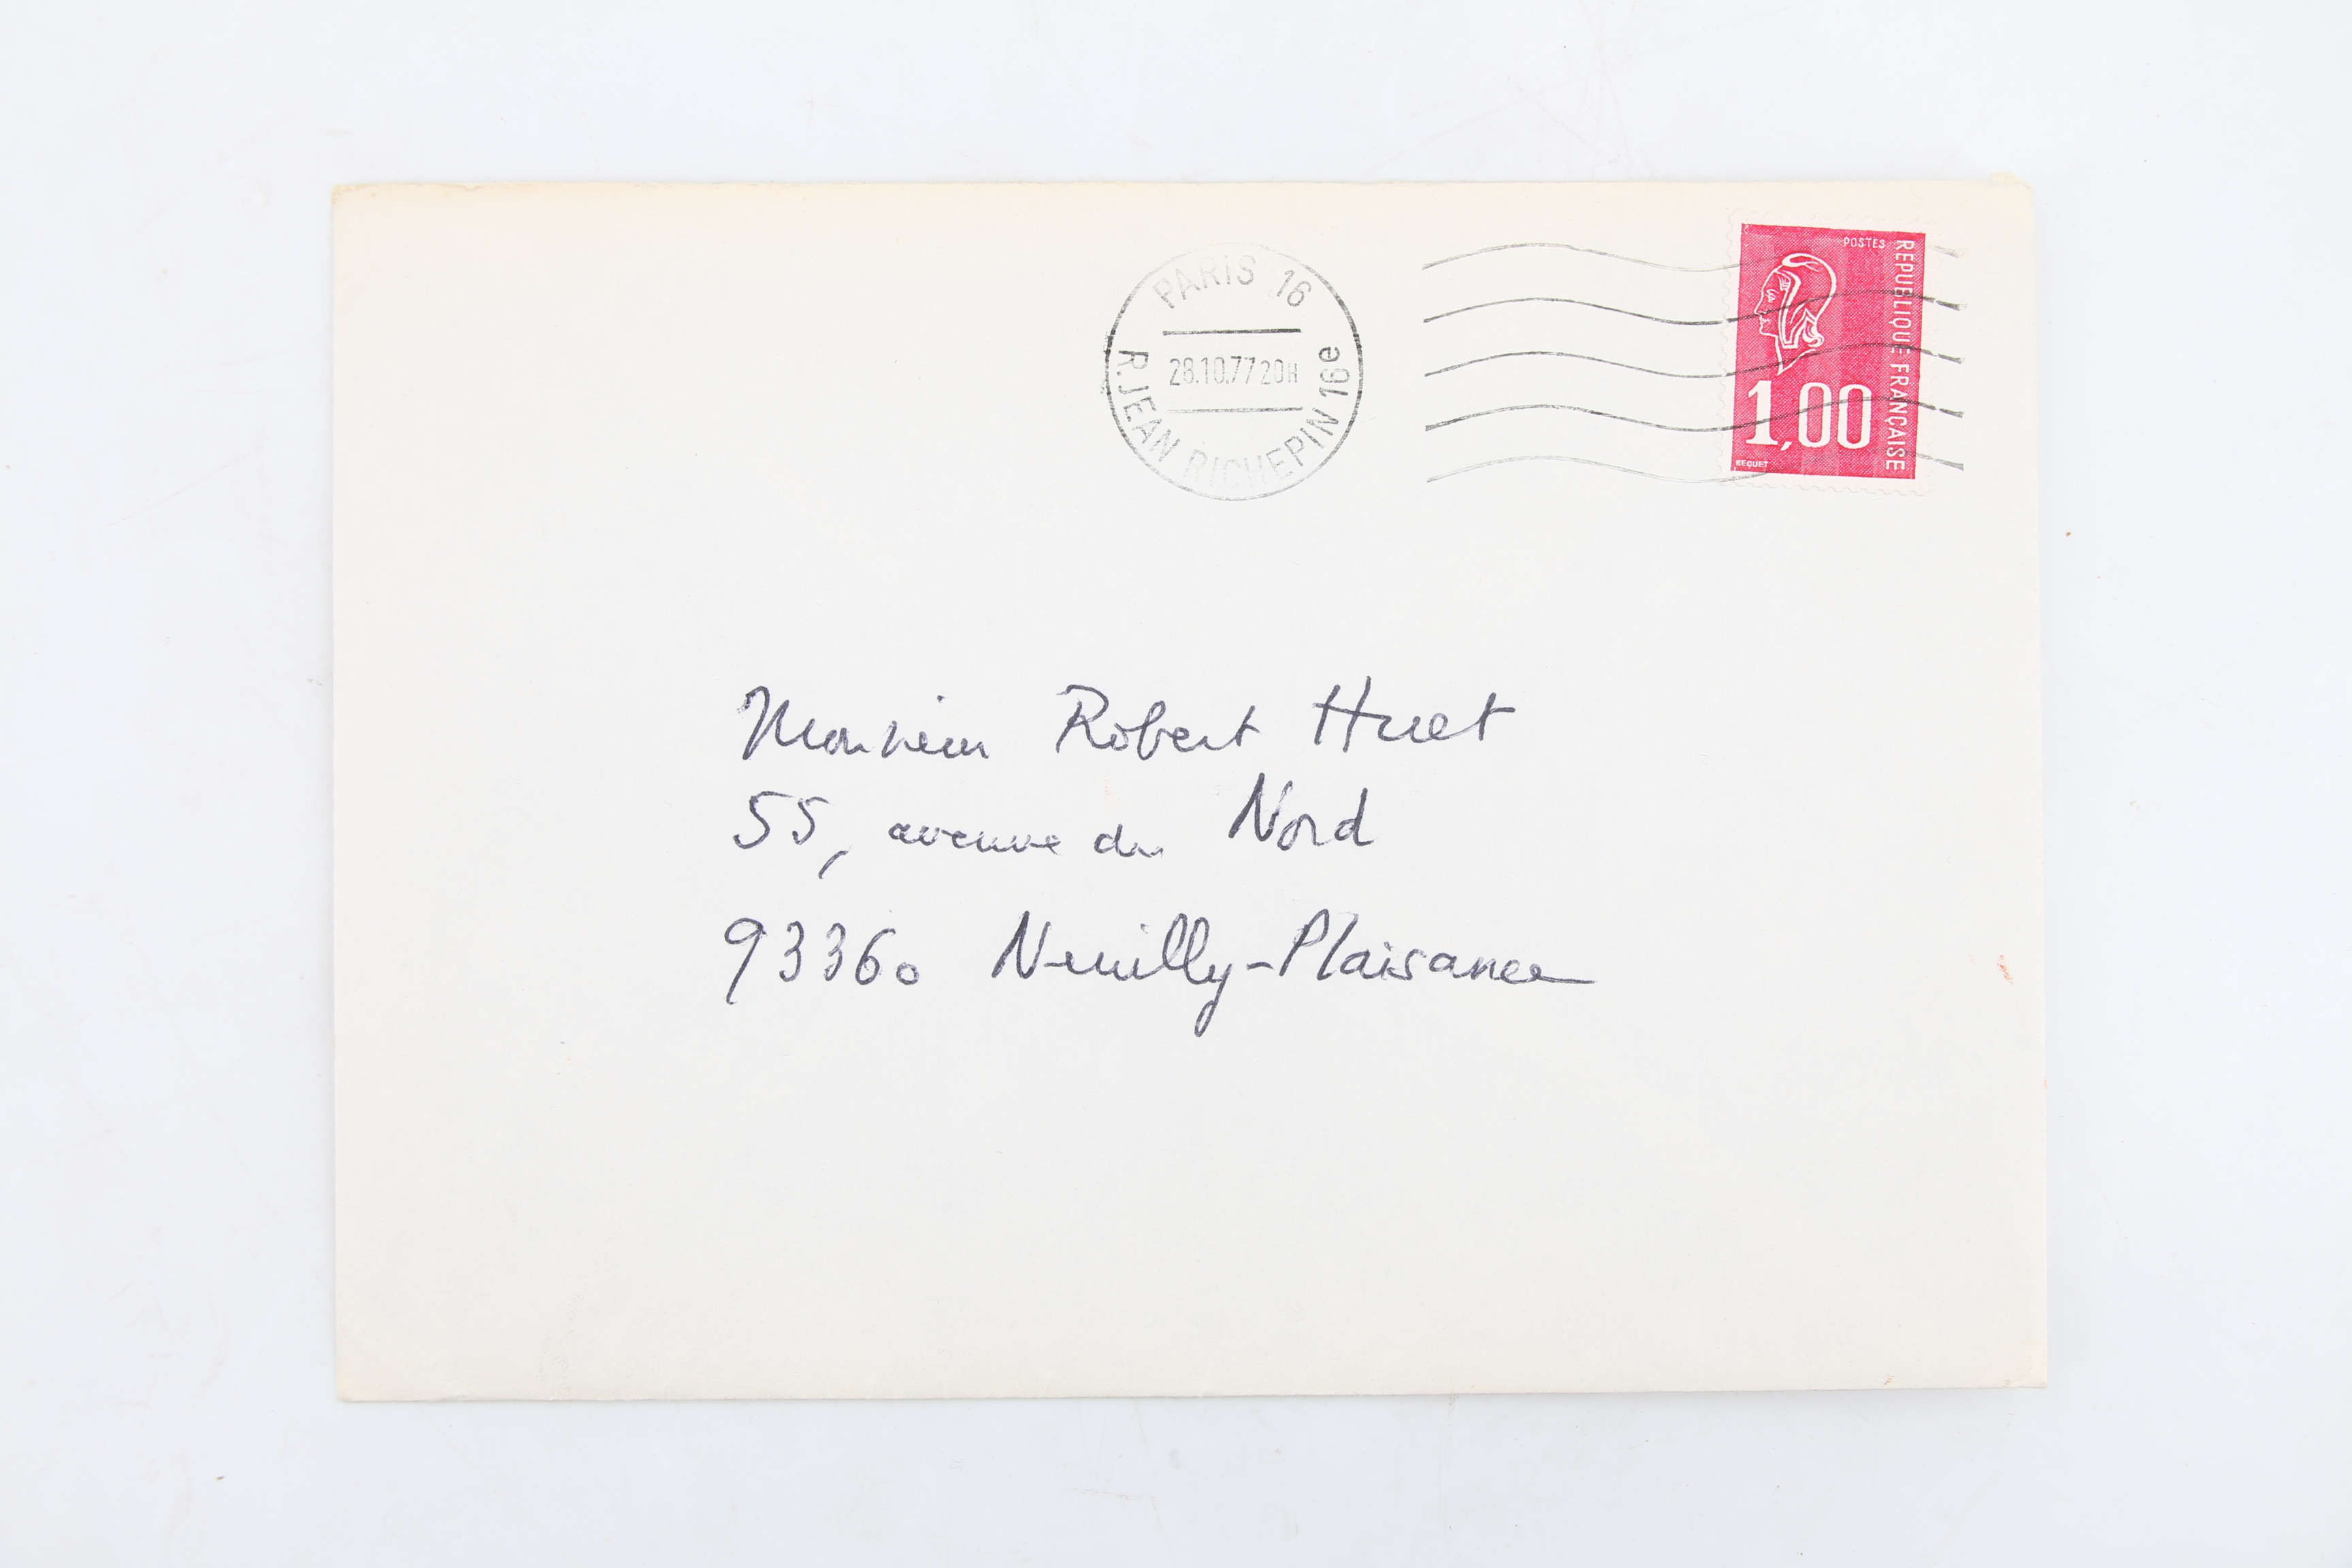 PARIS 16
28.10.77 20H
R. JEAN RICHEPIN 16e
POSTES
REPUBLIQUE FRANÇAISE
1,00
BEQUET
Monsieur Robert Huet
55, avenue du Nord
93360 Neuilly-Plaisance